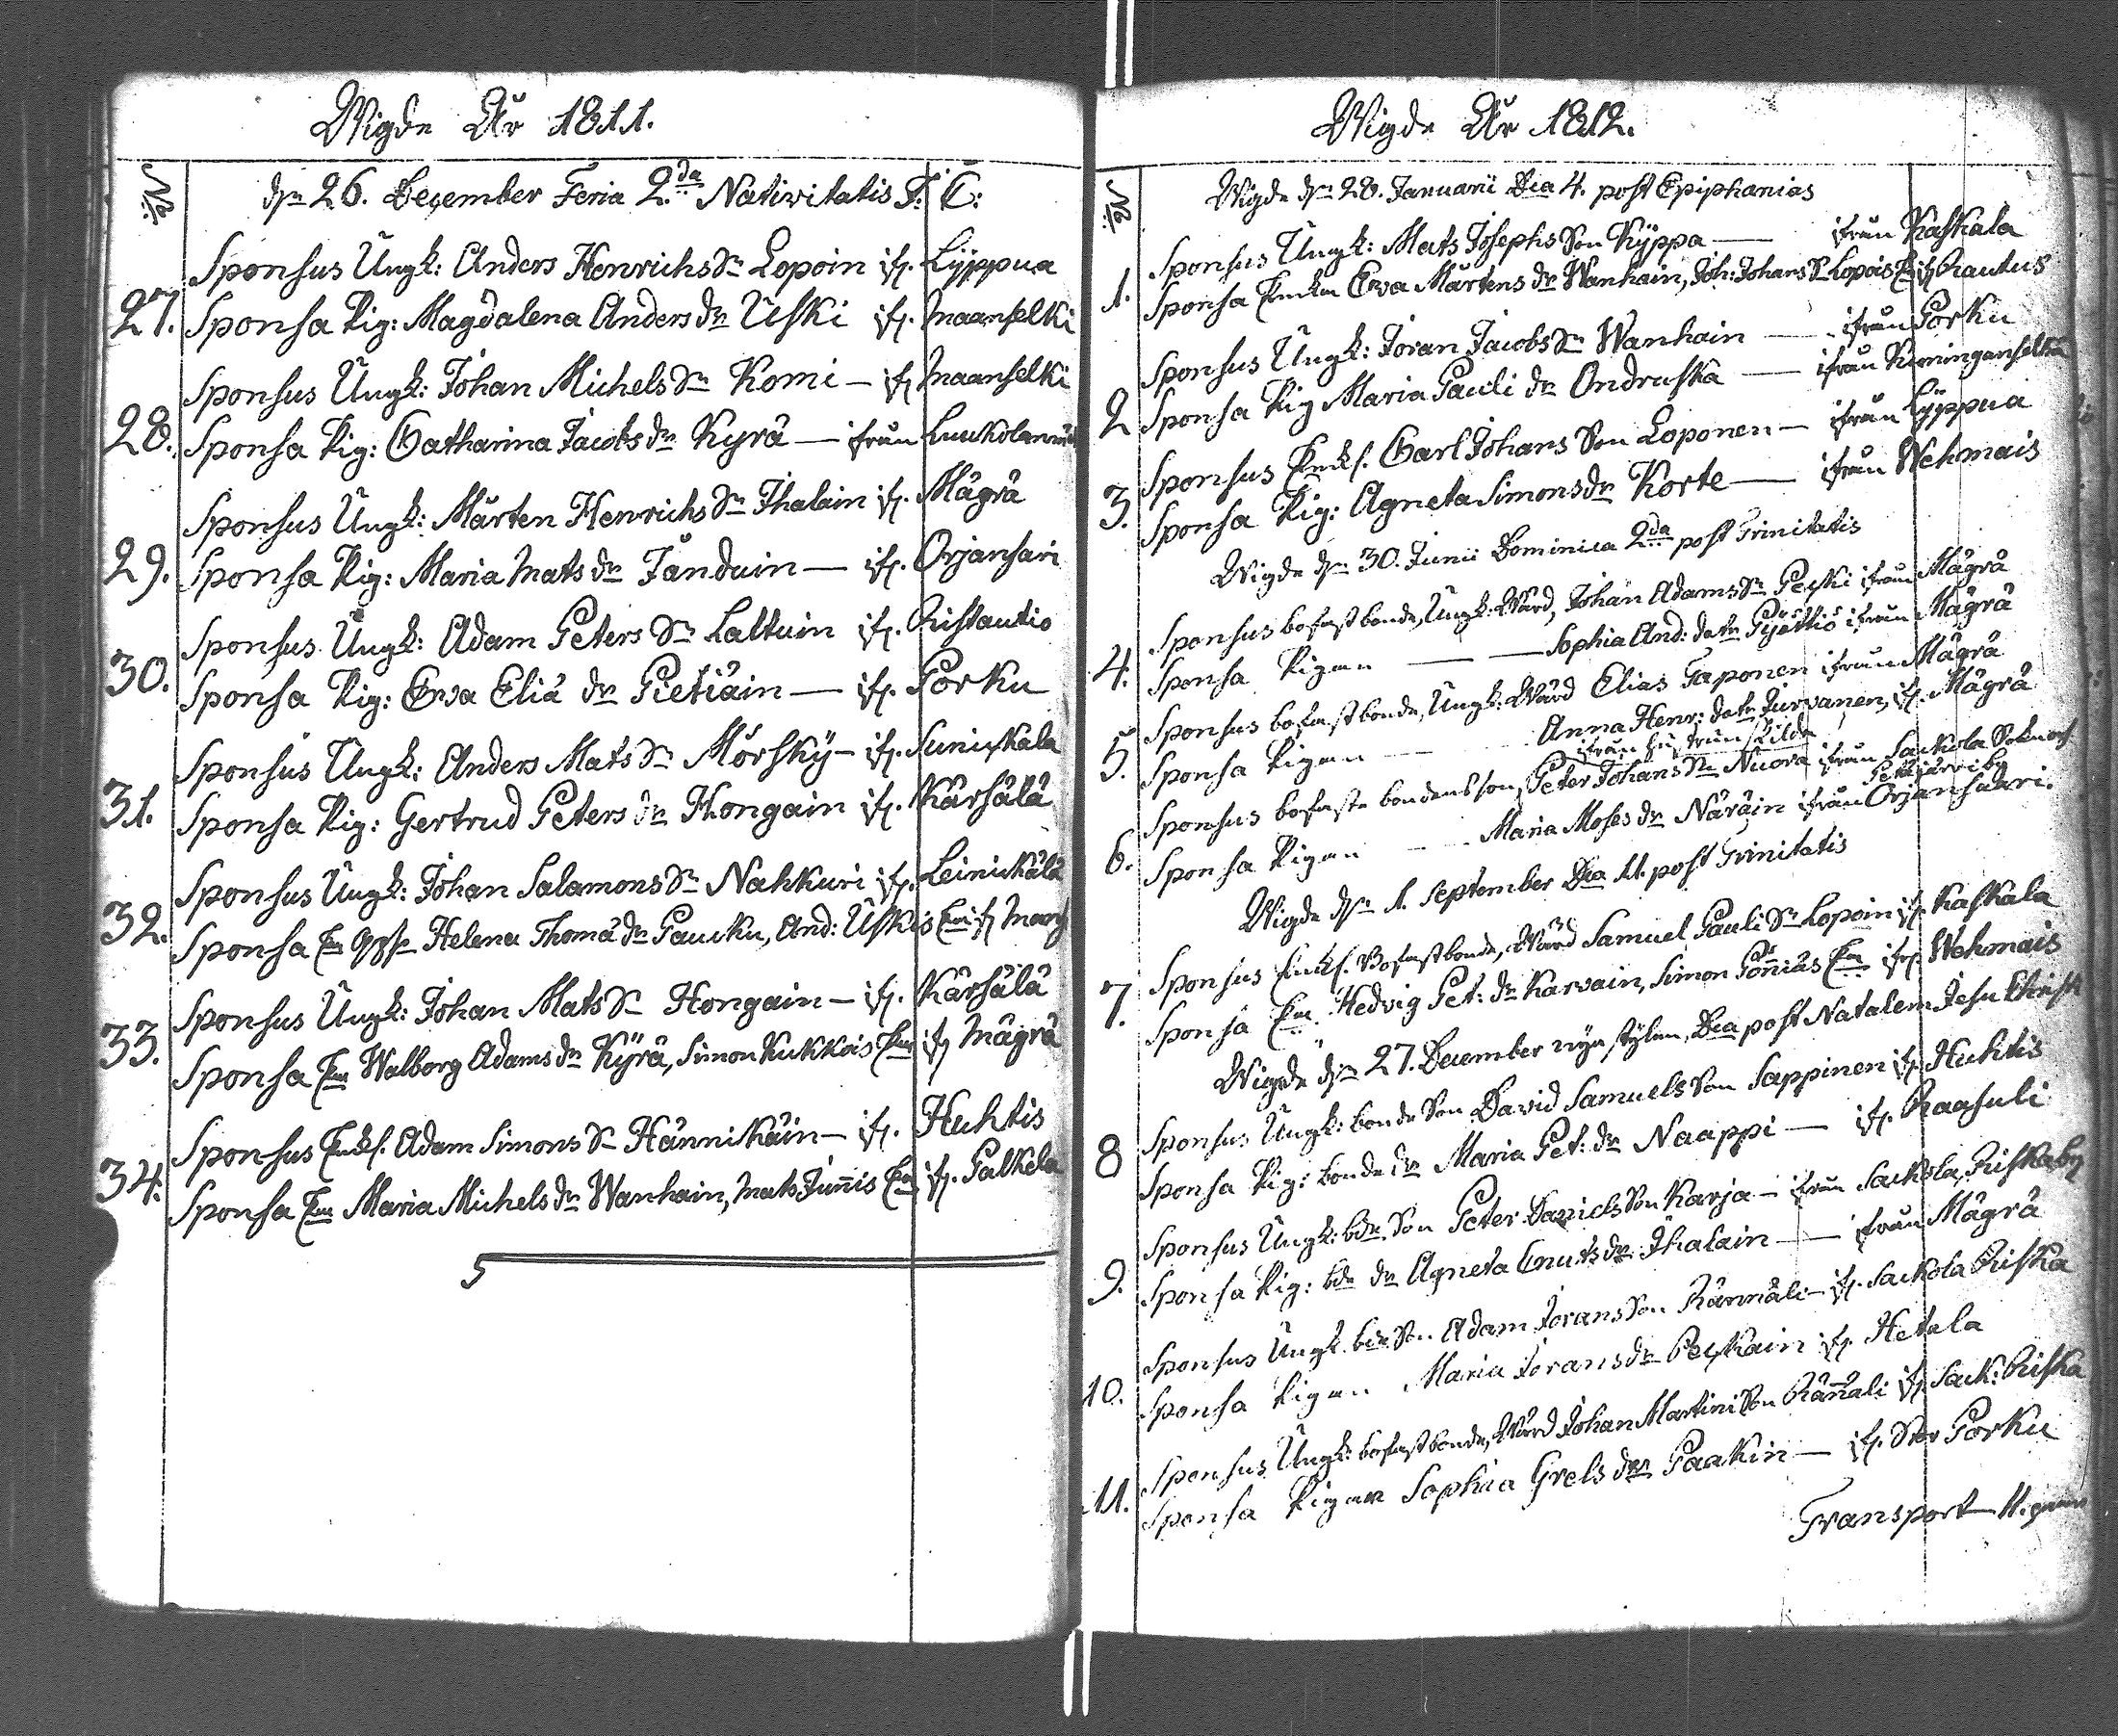 Wigde År 1811.
No:
den 26. December Feria 2:da Nativitatis J: C:
Sponsus Ungk: Anders Henrichs Sn Lopoin ifr. Lÿppua
27. Sponsa Pig: Magdalena Anders dr Uski ifr. Maanselki
Sponsus Ungk: Johan Michels Sn Komi — ifr Maanselki
28. Sponsa Pig: Catharina Jacobs dr Kyrä — ifrån
Sponsus Ungk: Mårten Henrichs Sn Ihalain ifr. Mägrä
29. Sponsa Pig: Maria Mats dr Janduin — ifr. Orjansari
Sponsus Ungk: Adam Peters Sn Laltuin ifr. Ristautio
30. Sponsa Pig: Ewa Eliä dr Pietiäin — ifr. Porku
Sponsus Ungk: Anders Mats Sn Mörskÿ — ifr. Sunickala
31. Sponsa Pig: Gertrud Peters dr Hongain ifr. Kärsälä
Sponsus Ungk: Johan Salamons Sn Nahkuri ifr. Leinickälä
32. Sponsa Helena Thomä dr Paucku, And: Uskis ifr
Sponsus Ungk: Johan Mats Sn Hongain — ifr. Kärsälä
33. Sponsa Walborg Adams dr Kÿrä, Simon Kukkois ifr Mägrä
Sponsus Enckl. Adam Simons Sn Hännikäin — ifr. Huhtis
34. Sponsa Maria Michels dr Wanhain, Mats Junnis ifr. Palkela
Wigde År 1812.
No:
Wigde den 28. Januarii Dca 4. post Epiphanias
Sponsus Ungk: Mats Josephs Son Kÿppa — ifrån Kaskala
1. Sponsa Enckan Ewa Mårtens dr Wanhain, Joh: Johans Sn Lopois ifr Rautus
Sponsus Ungk: Joran Jacobs Sn Wanhain — ifrån Porku
2 Sponsa Pig Maria Pauli dr Ondruska — ifrån
Sponsus Enckl. Carl Johans Son Loponen — ifrån Lÿppua
3. Sponsa Pig: Agneta Simons dr Korte — ifrån Wehmais
Wigde den 30. Junii Dominica 2:da post Trinitatis
Sponsus bofast bonde, Ungk: Wärd, Johan Adams Sn Peski ifrån Mägrä
4. Sponsa Pigan — — Sophia And: dotr ifrån Mägrä
Sponsus bofast bonde, Ungk: Wärd Elias Taponen ifrån Mägrä
5. Sponsa Pigan — Anna Henr: dotr Jurvanen, ifr. Mägrä
ifrån hustrun skilda
Sponsus bofaste bondens son, Peter Johans Sn Nuora ifrån Sackola Sokn och
Petäjärvi by
6. Sponsa Pigan — Maria Moses dr Näräin ifrån Orjansaari.
Wigde den 1. September Dca 11. post Trinitatis
Sponsus Enckl. Bofast bonde, Wärd Samuel Pauli Sn Lopoin ifr. Kaskala
7. Sponsa Hedvig Pet: dr Karvain, Simon Pönniäs ifr. Wehmais
Wigde den 27. December nya stylen, Dca post Natalem Jesu Christi
Sponsus Ungk: bonde Son David Samuels Son Sappinen ifr. Huhtis
8 Sponsa Pig: bonde dr Maria Pet: dr Naappi — ifr. Raasuli
Sponsus Ungk: bde Son Peter Daniels Son Karja — ifrån Sackola, Riska by
9. Sponsa Pig: bde dr Agneta Cnuts dr Ihalain — ifrån Mägrä
Sponsus Ungk. bde Son Adam Jorans Son Rännäli — ifr. Sackola Riska
10. Sponsa Pigan Maria Jorans dr Peskain ifr. Hetala
Sponsus Ungk: bofast bonde, Wärd Johan Martini Son Rännäli ifr. Sack: Riska
11. Sponsa Pigan Sophia Grels dr Paakin — ifr. Stor Porku
Transport 11.